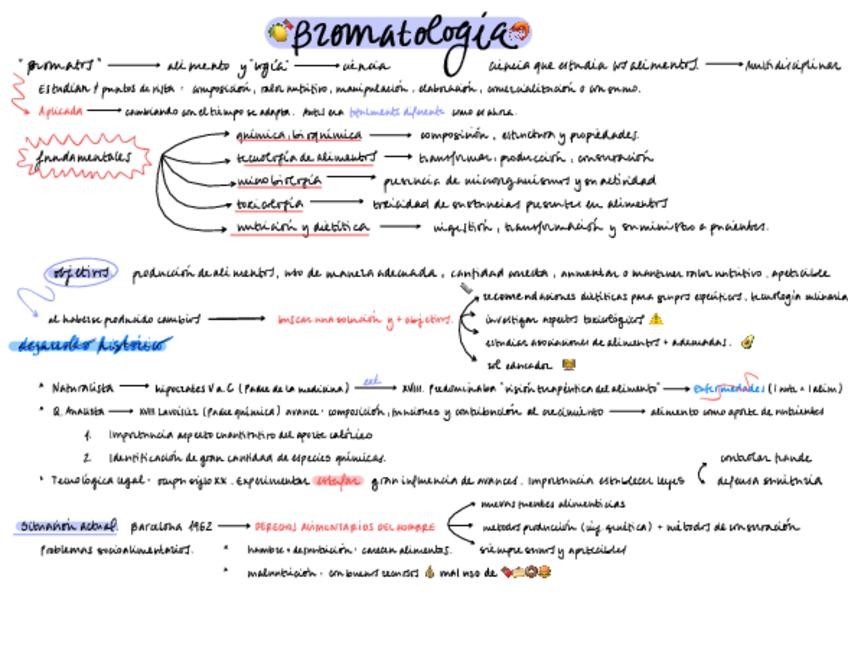 Bromatología
"Bromatos" → alimento y "logía" → ciencia ciencia que estudia los alimentos. → Multidisciplinar
Estudian / puntos de vista · composición, valor nutritivo, manipulación, elaboración, comercialización o consumo.
Aplicada → cambiando con el tiempo se adapta. Antes era totalmente diferente como es ahora.
fundamentales
química, bioquímica → composición, estructura y propiedades.
tecnología de alimentos → transformar, producción, conservación
microbiología → presencia de microorganismos y su actividad
toxicología → toxicidad de sustancias presentes en alimentos
nutrición y dietética → ingestión, transformación y suministro a pacientes.
objetivos producción de alimentos, uso de manera adecuada, cantidad correcta, aumentar o mantener valor nutritivo. apetecible
al haberse producido cambios → buscar una solución y + objetivos.
recomendaciones dietéticas para grupos específicos, tecnología culinaria
investigar aspectos toxicológicos
estudiar asociaciones de alimentos + adecuadas.
rol educador
desarrollo histórico
* Naturalista → hipócrates V a.C (Padre de la medicina) → XVIII. Predominaba "visión terapéutica del alimento" → Enfermedades (1 nutr. = 1 alim)
* Q. Analista → XVIII Lavoisier (Padre química) avance · composición, funciones y contribución al crecimiento → alimento como aporte de nutrientes
1. Importancia aspecto cuantitativo del aporte calórico
2. Identificación de gran cantidad de especies químicas.
* Tecnológica legal · siglo XX. Experimentar estafar gran influencia de avances. Importancia establecer leyes
controlar fraude
defensa sanitaria
Situación actual. Barcelona 1962 → DERECHOS ALIMENTARIOS DEL HOMBRE
nuevas fuentes alimenticias
métodos producción (ing. genética) + métodos de conservación
siempre seguros y apetecibles
Problemas socioalimentarios. * hambre + desnutrición · carecen alimentos.
* malnutrición · con buenos recursos mal uso de